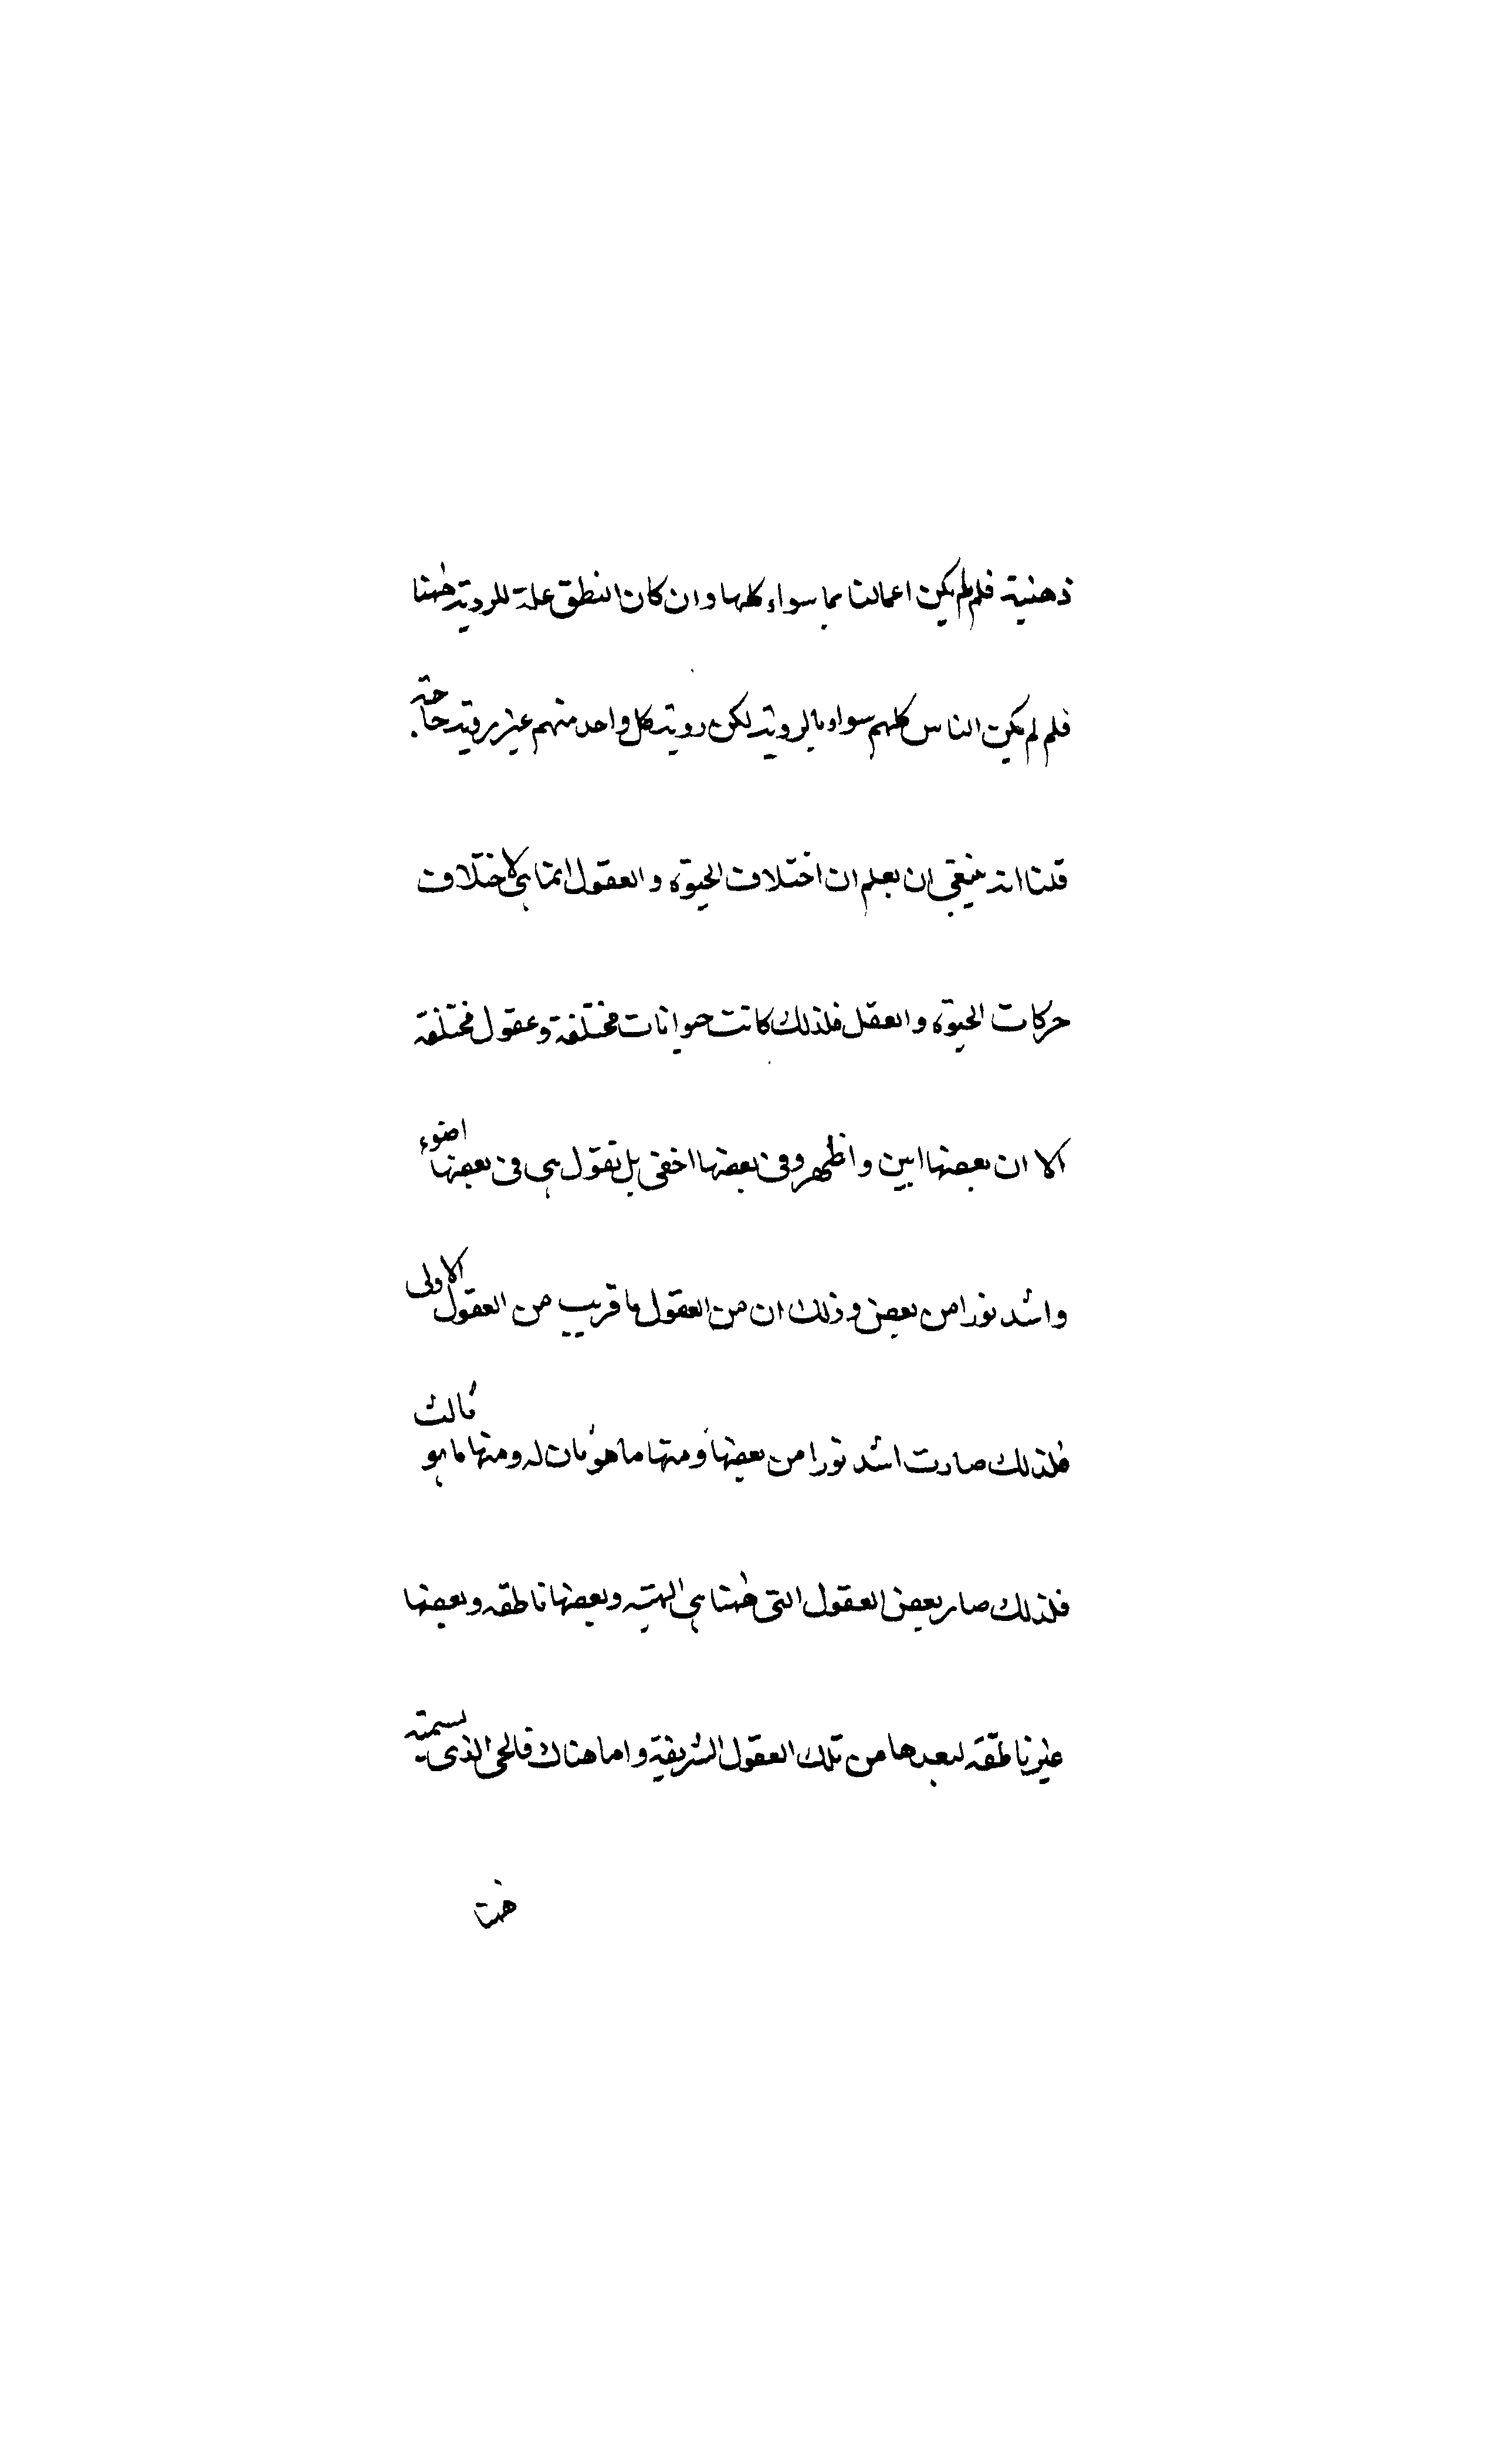 ذهنية فلم لم يكن اعمالنا بها سواء كلها وان كان النطق علة للروية ههنا
فلم لم يكن الناس كلهم سواء بالروية لكن روية كل واحد منهم غير روية صاحبه
قلنا انه ينبغى ان يعلم ان اختلاف الحيوة والعقول انما هى لاختلاف
حركات الحيوة والعقل فلذلك كانت حيوانات مختلفة وعقول مختلفة
الا ان بعضها ابين واظهر وفى بعضها اخفى بل نقول هى فى بعضها اضوء
واشد نورا من بعض وذلك ان من العقول ما قريب من العقول الاولى
فلذلك صارت اشد نورا من بعضها ومنها ما هو ثان له ومنها ما هو ثالث
فلذلك صار بعض العقول التى ههنا هى الهية وبعضها ناطقه وبعضها
غير ناطقه لبعدها من تلك العقول الشريفة واما هناك فالحى الذى يسميه
ههنا